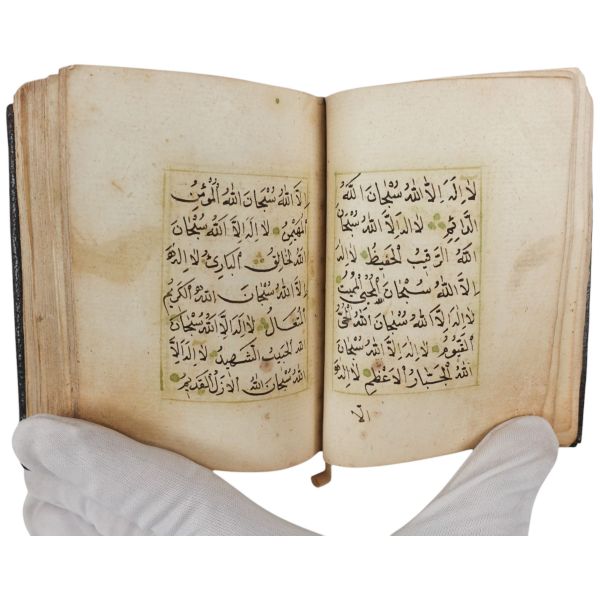 لا اله الا الله سبحان الله
الدائم لا اله الا الله سبحان
الله الرقيب الحفيظ لا اله
الا الله سبحان المحيي المميت
لا اله الا الله سبحان الله الحي
القيوم لا اله الا الله سبحان
الله الجبار الاعظم لا اله
الا
الا الله سبحان الله المؤمن
المهيمن لا اله الا الله سبحان
الله الخالق البارئ لا اله
الا الله سبحان الله الكريم
المتعال لا اله الا الله سبحان
الله الحبيب الشهيد لا اله الا
الله سبحان الله الازل القديم